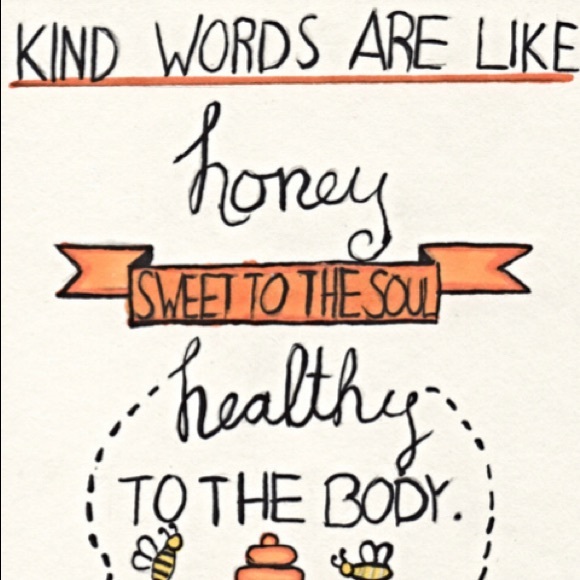 KIND WORDS ARE LIKE
honey
SWEET TO THE SOUL
healthy
TO THE BODY.